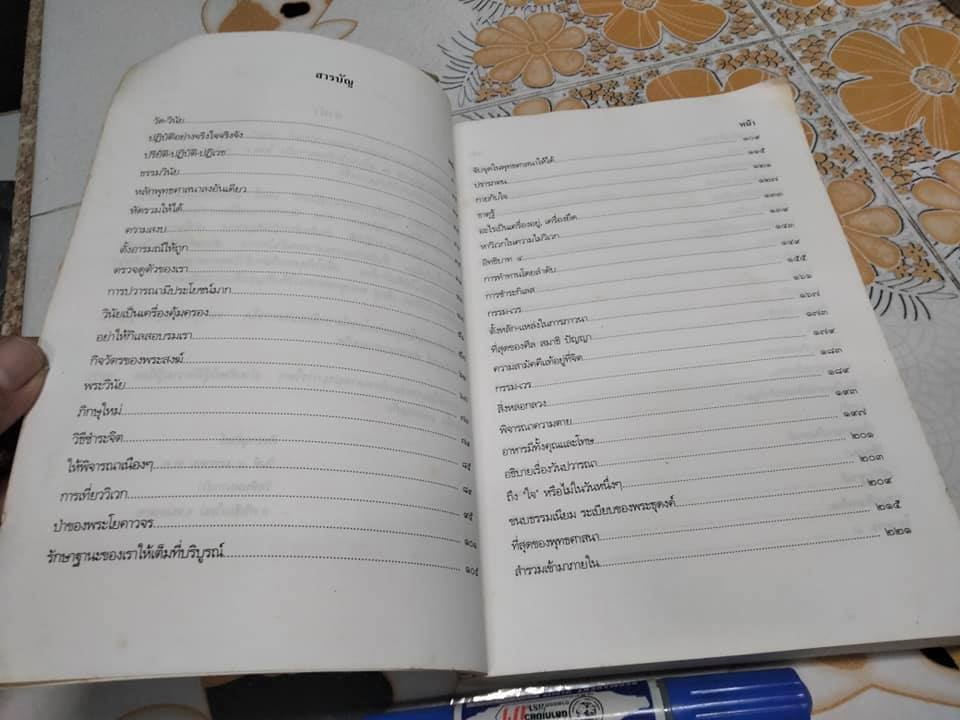 สารบัญ
วัด-วินัย
ปฏิบัติอย่างจริงใจจริงจัง
ปริยัติ-ปฏิบัติ-ปฏิเวธ
ธรรมวินัย
หลักพุทธศาสนาลงอันเดียว
หัดรวมให้ได้
ความสงบ
ตั้งอารมณ์ให้ถูก
ตรวจดูตัวของเรา
การปวารณามีประโยชน์มาก
วินัยเป็นเครื่องคุ้มครอง
อย่าให้กิเลสอบรมเรา
กิจวัตรของพระสงฆ์
พระวินัย
ภิกษุใหม่
วิธีชำระจิต
ให้พิจารณาเนืองๆ
การเที่ยววิเวก
ป่าของพระโยคาวจร
รักษาฐานะของเราให้เต็มที่บริบูรณ์ ๑๐๕
หน้า
จับจุดในพุทธศาสนาให้ได้ ๑๐๙
ปรารภตน ๑๑๕
กายกับใจ ๑๒๑
ธาตุรู้ ๑๒๗
อะไรเป็นเครื่องอยู่, เครื่องยึด ๑๓๓
หาวิเวกในความไม่วิเวก ๑๓๙
อิทธิบาท ๔ ๑๔๓
การทำทานโดยลำดับ ๑๔๙
การชำระกิเลส ๑๕๕
กรรม-เวร ๑๖๑
ตั้งหลัก-แหล่งในการภาวนา ๑๖๗
ที่สุดของศีล สมาธิ ปัญญา ๑๗๓
ความสามัคคีแท้อยู่ที่จิต ๑๗๙
กรรม-เวร ๑๘๓
สิ่งหลอกลวง ๑๘๙
พิจารณาความตาย ๑๙๓
อาหารมีทั้งคุณและโทษ ๑๙๗
อธิบายเรื่องวันปวารณา ๒๐๑
ถึง "ใจ" หรือไม่ในวันหนึ่งๆ ๒๐๓
ขนบธรรมเนียม ระเบียบของพระธุดงค์ ๒๐๙
ที่สุดของพุทธศาสนา ๒๑๕
สำรวมเข้ามาภายใน ๒๒๑